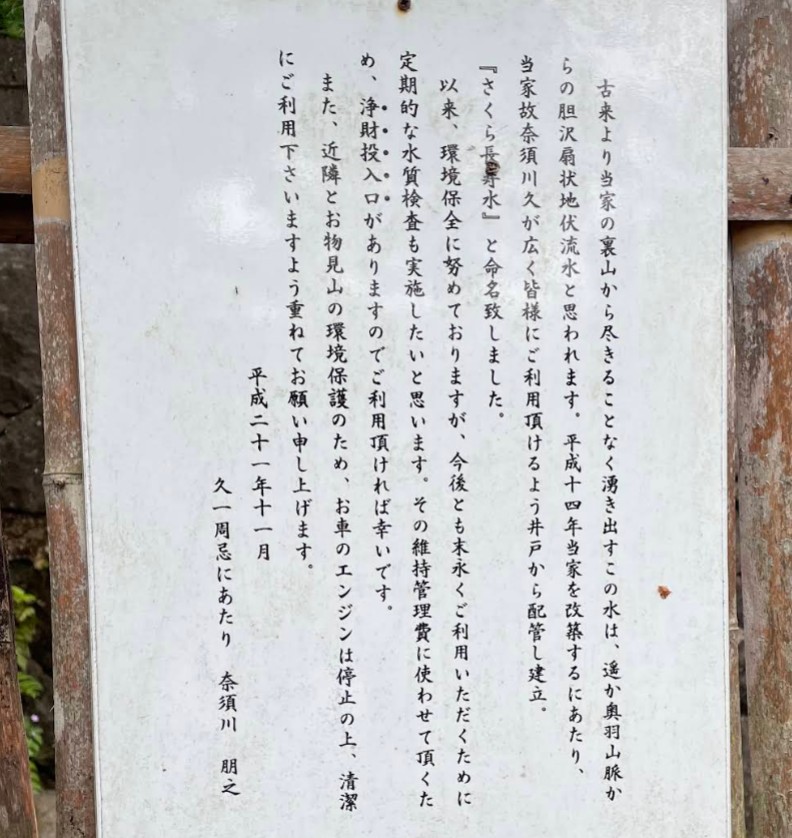 古来より当家の裏山から尽きることなく湧き出すこの水は、遥か奥羽山脈か
らの胆沢扇状地伏流水と思われます。平成十四年当家を改築するにあたり、
当家故奈須川久が広く皆様にご利用頂けるよう井戸から配管し建立。
『さくら長寿水』と命名致しました。
以来、環境保全に努めておりますが、今後とも末永くご利用いただくために
定期的な水質検査も実施したいと思います。その維持管理費に使わせて頂くた
め、浄財投入口がありますのでご利用頂ければ幸いです。
また、近隣とお物見山の環境保護のため、お車のエンジンは停止の上、清潔
にご利用下さいますよう重ねてお願い申し上げます。
平成二十一年十一月
久一周忌にあたり 奈須川 朋之